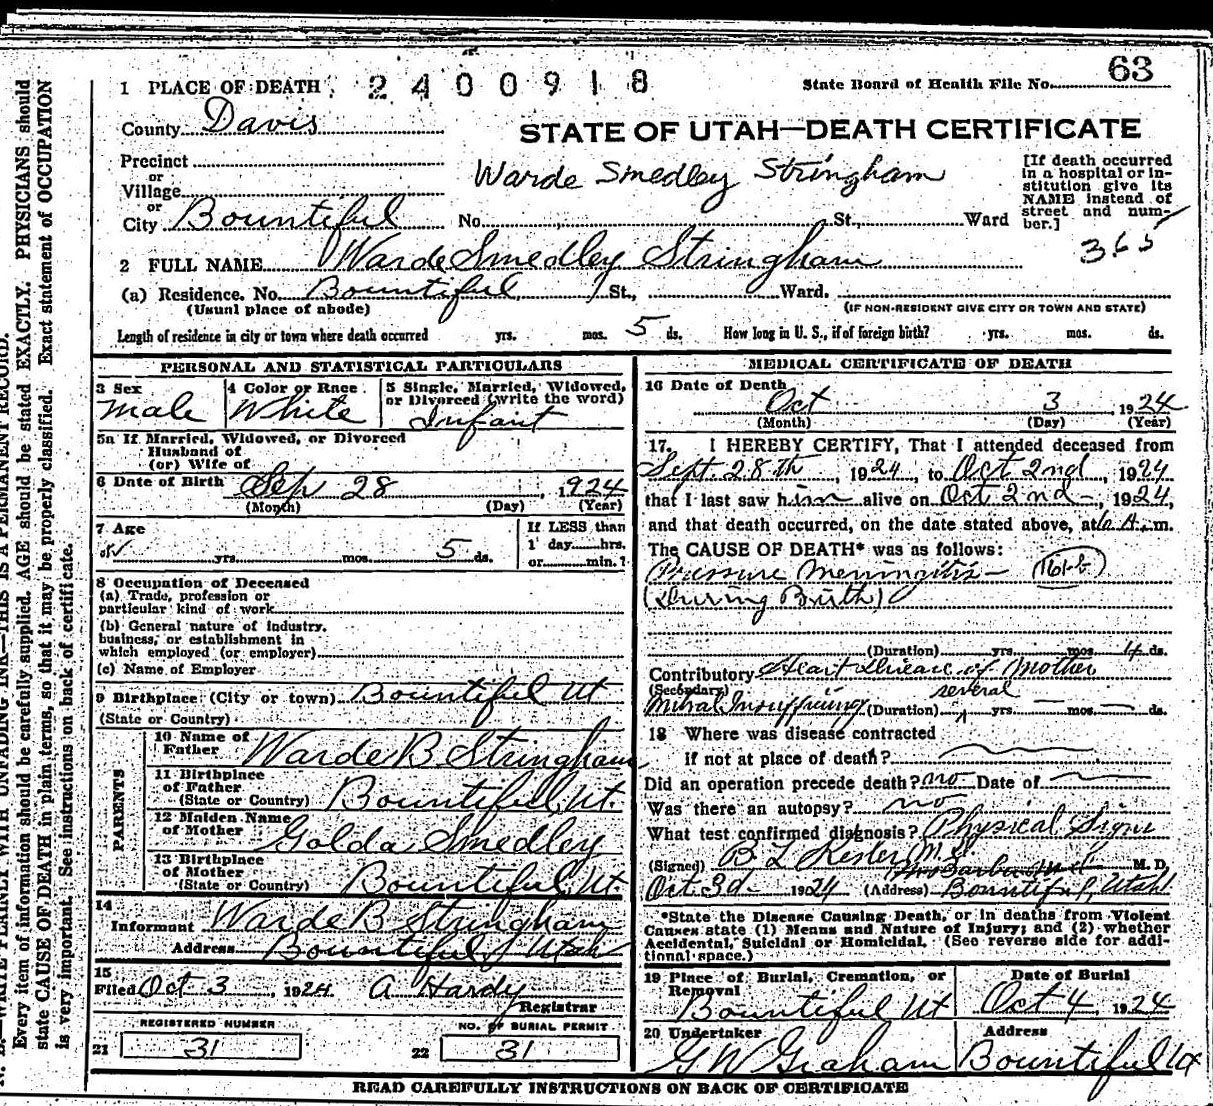 63
1 PLACE OF DEATH 2400918 State Board of Health File No.
County Davis
STATE OF UTAH—DEATH CERTIFICATE
Precinct
or
Village
or
City Bountiful No. St., Ward
Warde Smedley Stringham
[If death occurred
in a hospital or in-
stitution give its
NAME instead of
street and num-
ber.]
365
2 FULL NAME Warde Smedley Stringham
(a) Residence. No. Bountiful, St., Ward.
(Usual place of abode) (IF NON-RESIDENT GIVE CITY OR TOWN AND STATE)
Length of residence in city or town where death occurred yrs. mos. 5 ds. How long in U. S., if of foreign birth? yrs. mos. ds.
PERSONAL AND STATISTICAL PARTICULARS
3 Sex 4 Color or Race 5 Single, Married, Widowed,
or Divorced (write the word)
Male White Infant
5a If Married, Widowed, or Divorced
Husband of
(or) Wife of
6 Date of Birth Sep 28, 1924
(Month) (Day) (Year)
7 Age If LESS than
yrs. mos. 5 ds. 1 day hrs.
or min.?
8 Occupation of Deceased
(a) Trade, profession or
particular kind of work
(b) General nature of industry,
business, or establishment in
which employed (or employer)
(c) Name of Employer
9 Birthplace (City or town) Bountiful Ut
(State or Country)
PARENTS
10 Name of
Father Warde B Stringham
11 Birthplace
of Father
(State or Country) Bountiful, Ut.
12 Maiden Name
of Mother Golda Smedley
13 Birthplace
of Mother
(State or Country) Bountiful, Ut.
14
Informant Warde B Stringham
Address Bountiful, Utah
15
Filed Oct 3, 1924 A Hardy
Registrar
REGISTERED NUMBER NO. OF BURIAL PERMIT
21 31 22 31
MEDICAL CERTIFICATE OF DEATH
16 Date of Death
Oct 3, 1924
(Month) (Day) (Year)
17. I HEREBY CERTIFY, That I attended deceased from
Sept. 28th, 1924, to Oct 2nd, 1924
that I last saw him alive on Oct 2nd, 1924,
and that death occurred, on the date stated above, at 6 A. m.
The CAUSE OF DEATH* was as follows:
Pressure Meningitis— 161-b
(During Birth)
(Duration) yrs. mos. 4 ds.
Contributory Heart disease of Mother
(Secondary) several
Mitral (Duration) yrs. mos. ds.
18 Where was disease contracted
if not at place of death?
Did an operation precede death? no Date of
Was there an autopsy? no
What test confirmed diagnosis? Physical Signs
(Signed) B L Kesler M.D. M. D.
Oct. 3d 1924 (Address) Bountiful, Utah
*State the Disease Causing Death, or in deaths from Violent
Causes state (1) Means and Nature of Injury; and (2) whether
Accidental, Suicidal or Homicidal. (See reverse side for addi-
tional space.)
19 Place of Burial, Cremation, or
Removal Date of Burial
Bountiful Ut Oct 4, 1924
20 Undertaker Address
G W Graham Bountiful Ut
READ CAREFULLY INSTRUCTIONS ON BACK OF CERTIFICATE
N. B.—WRITE PLAINLY WITH UNFADING INK—THIS IS A PERMANENT RECORD.
Every item of information should be carefully supplied. AGE should be stated EXACTLY. PHYSICIANS should
state CAUSE OF DEATH in plain terms, so that it may be properly classified. Exact statement of OCCUPATION
is very important. See instructions on back of certificate.